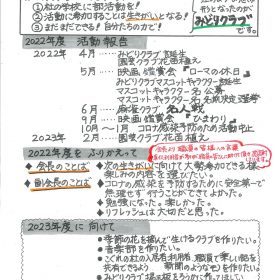 ①杜の学校に部活動を!
②活動に参加することは生きがいとなる!
③まだまだできる!自分たちの力で!
形となったのが
みどりクラブ
です。
2022年度 活動報告
2022年 4月 みどりクラブ誕生
園芸クラブ花苗植え
5月 映画鑑賞会『ローマの休日』
みどりクラブマスコットキャラクター誕生
マスコットキャラクター名公募
マスコットキャラクター名前決定選挙
6月 麻雀クラブ 名人戦
9月 映画鑑賞会『ひまわり』
10月〜1月 コロナ感染予防のため活動中止
2023年 2月 園芸クラブ花苗植え
2022年度をふりかえって
会長のことば
副会長のことば
◆次の生きがいに向けて大勢参加できる様
楽しみの内容を選びたい。
◆コロナの感染を予防するために安全第一で
無理せず行うことができてよかった。
◆勉強になった。楽しかった。
◆リフレッシュは大切だと思った。
2023年度に向けて
季節の花を摘んで生けるクラブを作りたい。
音楽のクラブを作りたい。